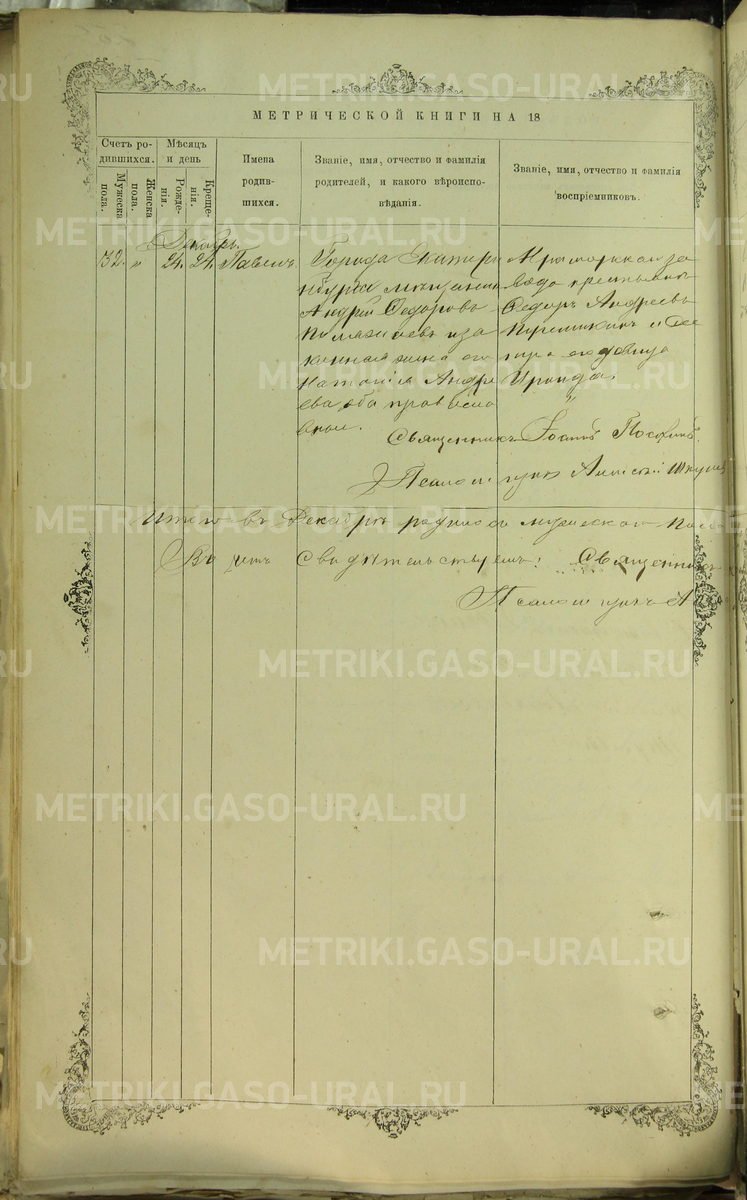 МЕТРИЧЕСКОЙ КНИГИ НА 18
Счетъ ро-
дившихся.
Мужеска
пола.
Женска
пола.
Мѣсяцъ
и день
Рожде-
нія.
Креще-
нія.
Имена
родив-
шихся.
Званіе, имя, отчество и фамилія
родителей, и какого вѣроиспо-
вѣданія.
Званіе, имя, отчество и фамилія
воспріемниковъ.
Декабрь
132. „ 24. 24. Павелъ.
Города Екатерин
бурга мѣщанинъ
Андрей Ѳедоровъ
и за
конная жена его
Наталія Андре
ева, оба православ
ные.
за
вода
Ѳедоръ Андреевъ
и
его дѣвица
Ираида.
Священникъ Іоаннъ
Псаломщикъ Алексѣй
Итого въ Декабрѣ родилось мужеска пола
Въ чемъ Свидѣтельствуемъ: Священникъ
Псаломщикъ А
METRIKI.GASO-URAL.RU